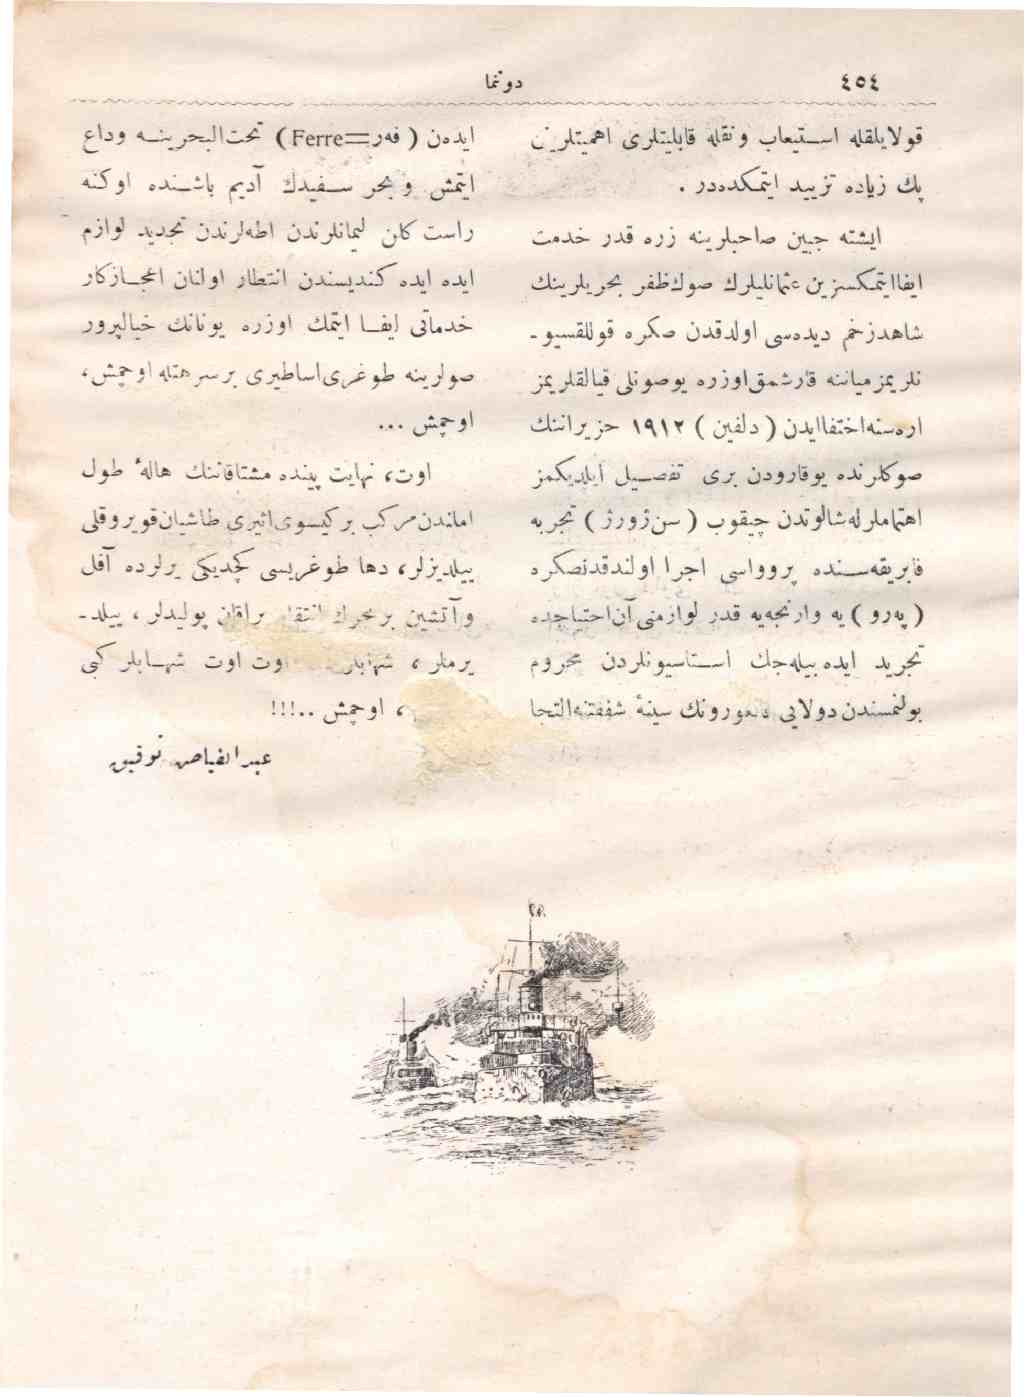 ٤٥٤
دوننما
قولايلقله استيعاب ونقله قابليتلرى اهميتلرين
پك زياده تزييد ايتمكده‌در .
ايشته جبين صاحبلرينه زره قدر خدمت
ايفا ايتمكسزين عثمانليلرك صوك ظفر بحريلرينك
شاهد زخم ديده‌سى اولدقدن صكره قوللقسيو ـ
نلريمز مياننه قارشمق اوزره يوصونلى قيالقلريمز
اره‌سنه اختفا ايدن ( دلفين ) ١٩١٢ حزيراننك
صوكلرنده يوقارودن برى تفصيل ايلديكمز
اهتماملرله شالوندن چيقوب ( سن ژورژ ) تجربه
فابريقه‌سنده پروواسى اجرا اولندقدنصكره
( په‌رو ) يه وارنجه‌يه قدر لوازمنى آن احتياجده
تجريد ايده بيله‌جك استاسيونلردن محروم
بولنمسندن دولايى سينهٔ شفقتنه التجا
ايده‌ن ( فه‌ر=Ferre ) تحت‌البحرينه وداع
ايتمش و بحر سفيدك آديم باشنده اوكنه
راست كلن ليمانلرندن اطه‌لرندن تجديد لوازم
ايده ايده كنديسندن انتظار اولنان اعجازكار
خدماتى ايفا ايتمك اوزره يونانك خياليرور
صولرينه طوغرى اساطيرى برسرهتله اوچمش،
اوچمش ...
اوت، نهايت پيننده مشتاقاننك هالهٔ طول
املندن مركب بر كيسوى اثيرى طاشيان قويروقلى
ييلديزلر، دها طوغريسى كچديكى يرلرده آفل
و آتشين بر محرك انتقام براقان پوليدلر ، ييلد ـ
يرملر ، شهابلر اوت اوت شهابلر كبى
، اوچمش ..!!!
عبدالفياض توفيق